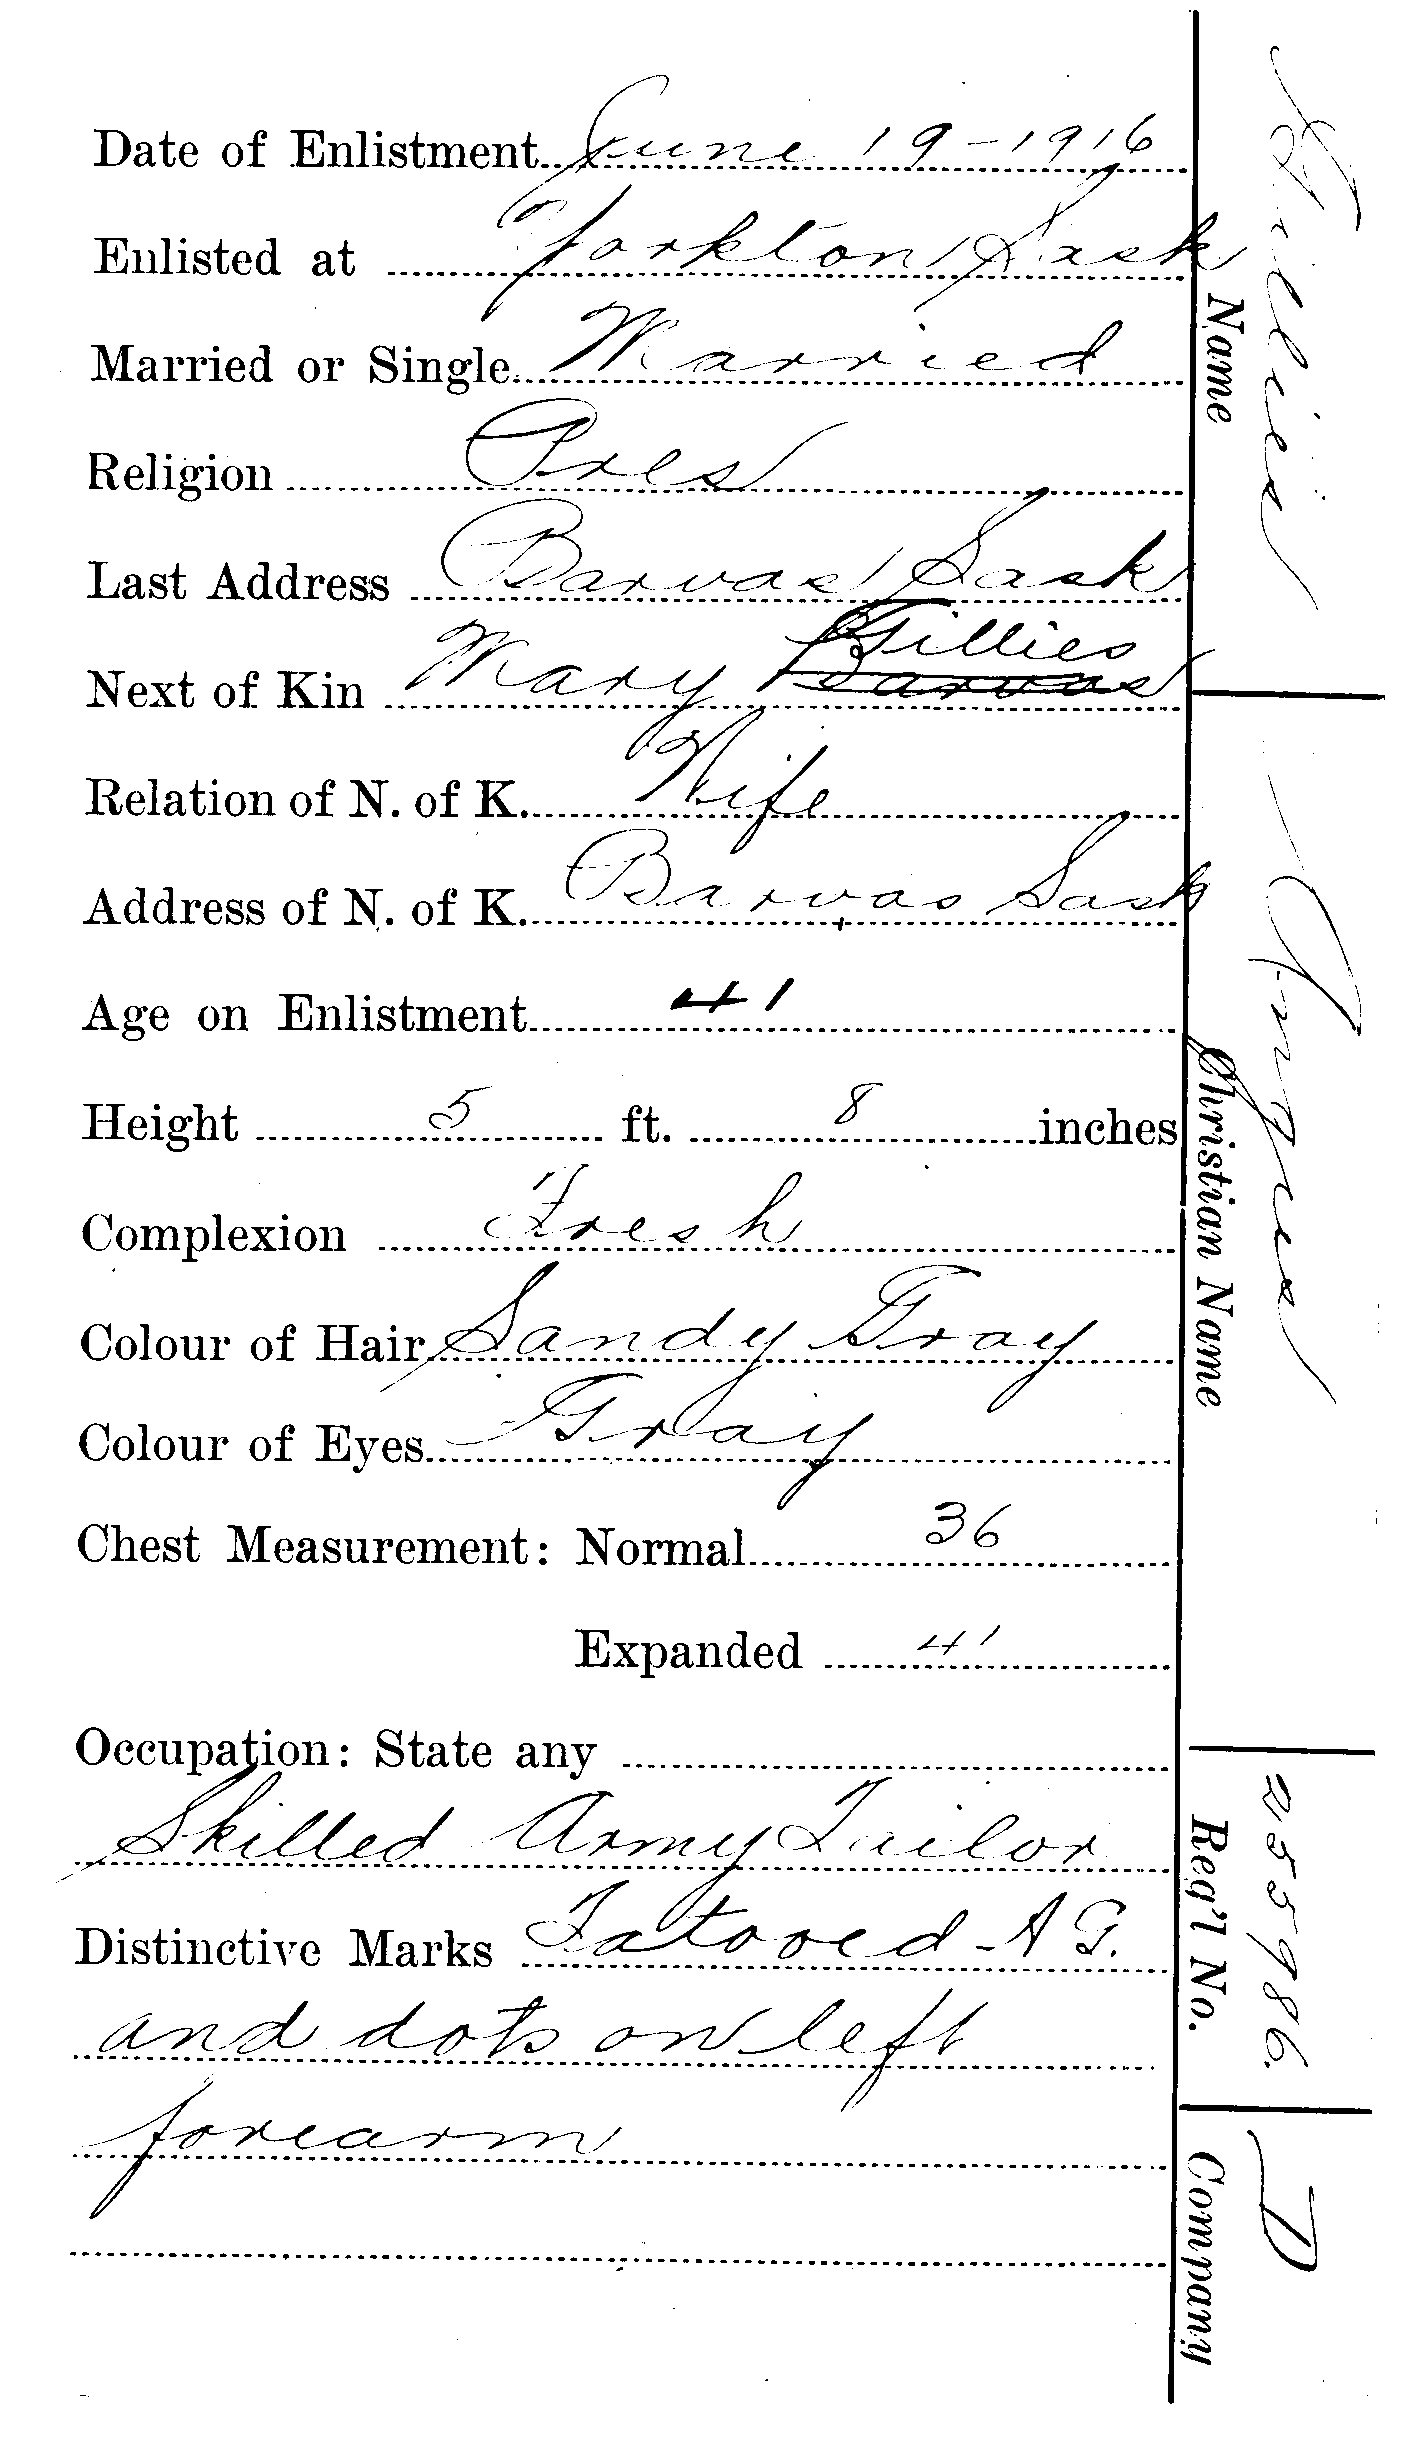 Date of Enlistment June 19-1916
Enlisted at Yorkton Sask
Married or Single Married
Religion Pres
Last Address Barvas Sask
Next of Kin Mary Barvas Gillies
Relation of N. of K. Wife
Address of N. of K. Barvas Sask
Age on Enlistment 41
Height 5 ft. 8 inches
Complexion Fresh
Colour of Hair Sandy Gray
Colour of Eyes Gray
Chest Measurement: Normal 36
Expanded 41
Occupation: State any
Skilled Army Tailor
Distinctive Marks Tatooed A G.
and dots on left
forearm
Name Gillies
Christian Name Angus
Reg'l No. 255986.
Company D